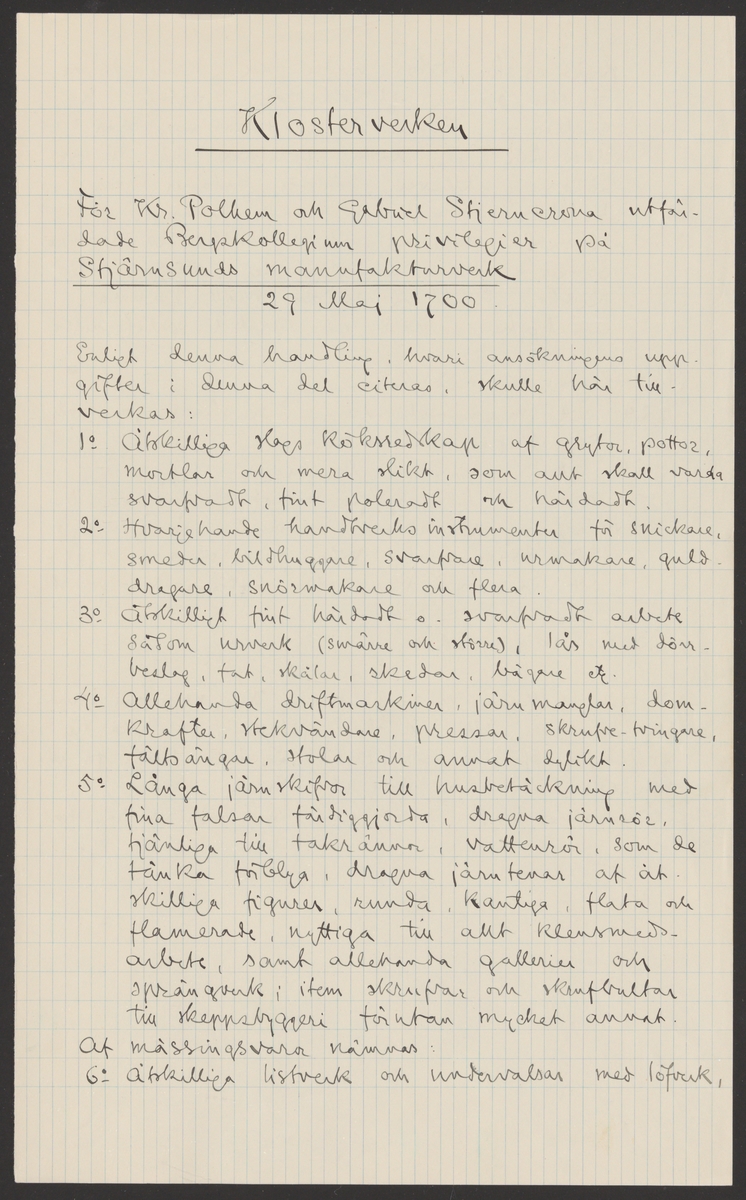 Klosterverken
För Kr. Polhem och Gabriel Stjerncrona utfär-
dade Bergskollegium privilegier på
Stjärnsunds manufakturverk
29 Maj 1700.
Enligt denna handling, hvari ansökningens upp-
gifter i denna del citeras, skulle här till-
verkas:
1º Åtskilliga slags köksredskap af grytor, pottor,
mortlar och mera slikt, som alt skall varda
svarfvadt, fint poleradt och härdadt.
2º Hvarjehande handtverks instrumenter för snickare,
smeder, bildhuggare, svarfvare, urmakare, guld-
dragare, snörmakare och flera.
3º Åtskilligt fint härdadt o. svarfvadt arbete
såsom urverk (smärre och större), lås med dörr-
beslag, fat, skålar, skedar, bägare etc.
4º Allehanda driftmaskiner, järnmanglar, dom-
krafter, stekvändare, pressar, skrufve-tvingare,
fältsängar, stolar och annat dylikt.
5º Långa järnskifvor till husbetäckning med
fina falsar färdiggjorda, dragna järnrör,
tjänliga till takrännor, vattenrör, som de
tänka förblya, dragna järntenar af åt-
skilliga figurer, runda, kantiga, flata och
flamerade, nyttiga till allt klensmeds-
arbete, samt allehanda gallerier och
sprängverk; item skrufvar och skrufbultar
till skeppsbyggeri förutan mycket annat.
Af mässingsvaror nämnas:
6º Åtskilliga listverk och undervalsar med löfverk,